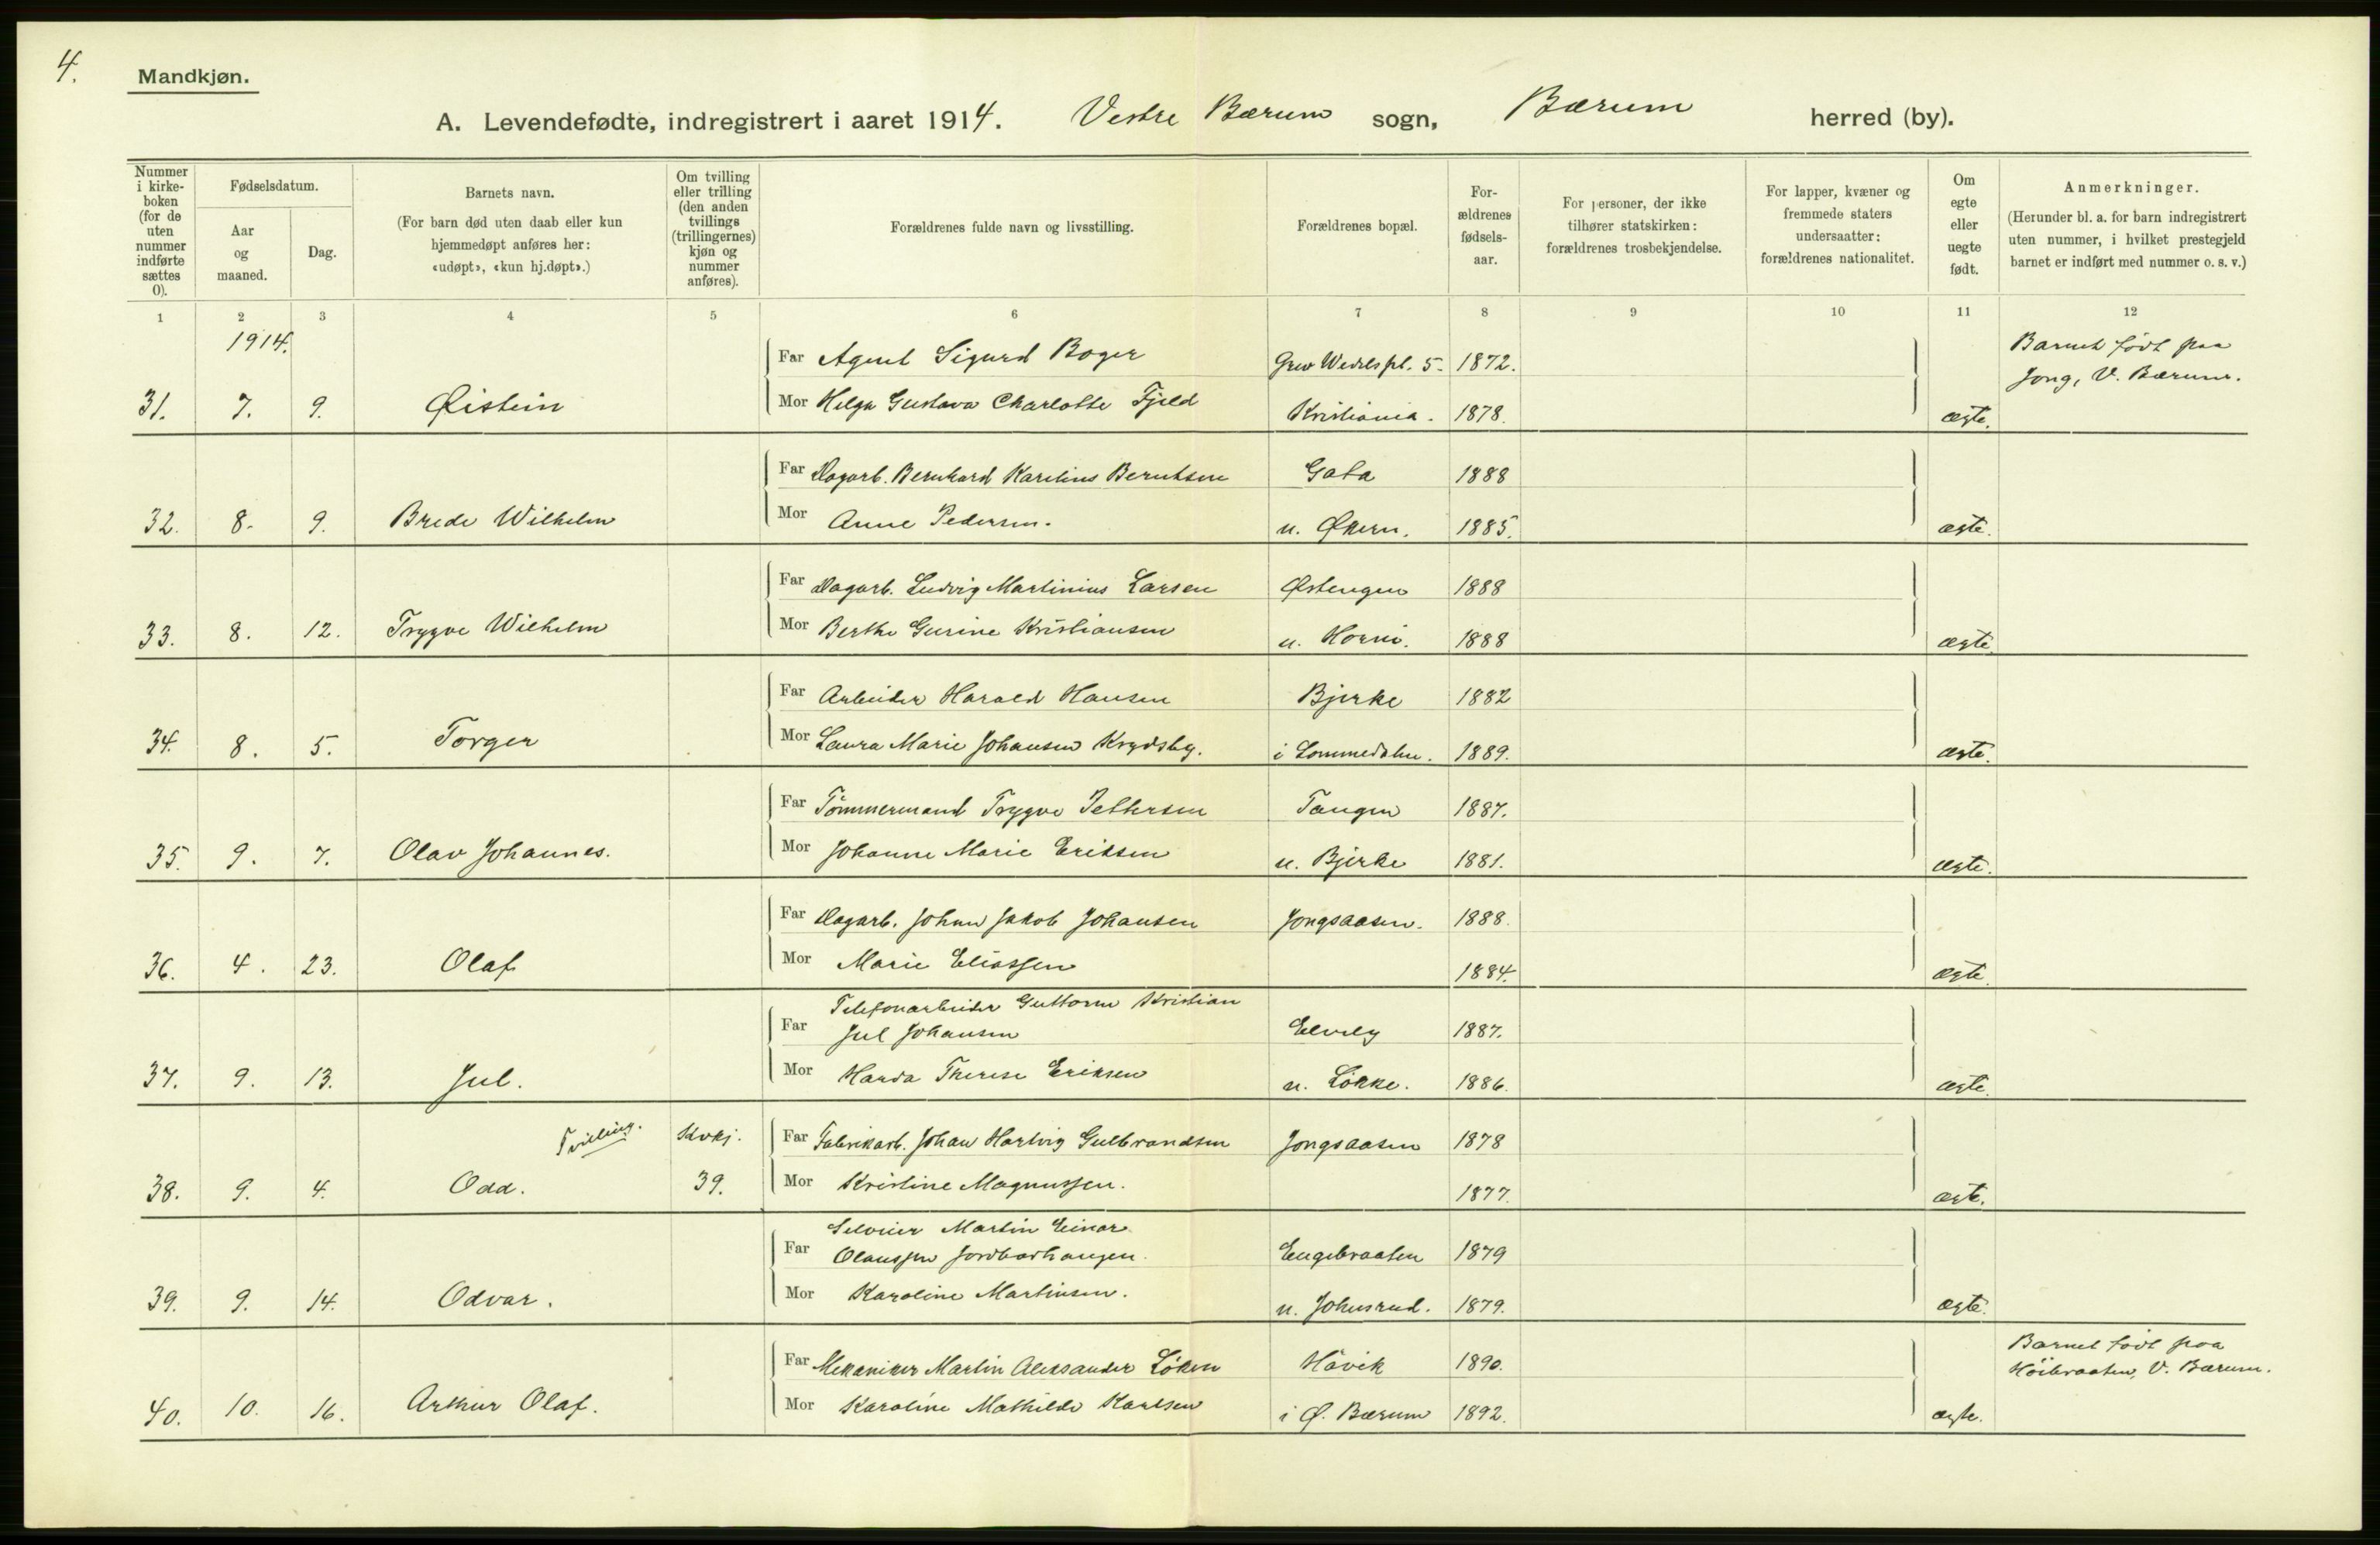 4.
Mandkjøn.
A. Levendefødte, indregistrert i aaret 1914. Vestre Bærum sogn, Bærum herred (by).
Nummer i kirkeboken (for de uten nummer indførte sættes 0).
Fødselsdatum.
Aar og maaned.
Dag.
Barnets navn.
(For barn død uten daab eller kun hjemmedøpt anføres her: «udøpt», «kun hj.døpt».)
Om tvilling eller trilling (den anden tvillings (trillingernes) kjøn og nummer anføres).
Forældrenes fulde navn og livsstilling.
Forældrenes bopæl.
Forældrenes fødselsaar.
For personer, der ikke tilhører statskirken: forældrenes trosbekjendelse.
For lapper, kvæner og fremmede staters undersaatter: forældrenes nationalitet.
Om egte eller uegte født.
Anmerkninger.
(Herunder bl. a. for barn indregistrert uten nummer, i hvilket prestegjeld barnet er indført med nummer o. s. v.)
1 2 3 4 5 6 7 8 9 10 11 12
1914.
Far Agent Sigurd Boger Grev Wedels pl. 5. 1872. Barnet født paa
Jong, V. Bærum.
31. 7. 9. Øistein Mor Helga Gustava Charlotte Fjeld Kristiania. 1878. ægte.
Far Dagarb. Bernhard Karelius Berntsen Gata 1888
32. 8. 9. Brede Wilhelm Mor Anne Pedersen. u. Økern. 1885. ægte.
Far Dagarb. Ludvig Martinius Larsen Østengen 1888
33. 8. 12. Trygve Wilhelm Mor Berthe Gurine Kristiansen u. Horni. 1888 ægte.
Far Arbeider Harald Hansen Bjerke 1882
34. 8. 5. Torger Mor Laura Marie Johansen Krydsby. i Lommedalen. 1889. ægte.
Far Tømmermand Trygve Pettersen Tangen 1887.
35. 9. 7. Olav Johannes. Mor Johanne Marie Eriksen u. Bjerke 1881. ægte.
Far Dagarb. Johan Jakob Johansen Jongsaasen. 1888.
36. 4. 23. Olaf Mor Marie Eliassen 1884. ægte.
Telefonarbeider Guttorm Kristian
Far Jul Johansen Elvely 1887.
37. 9. 13. Jul. Mor Harda Therese Eriksen u. Løkke. 1886. ægte.
Tvilling. Kvkj. Far Fabrikarb. Johan Hartvig Gulbrandsen Jongsaasen 1878
38. 9. 4. Odd. 39. Mor Kristine Magnussen. 1877. ægte.
Selveier Martin Einar
Far Olaussen Jordbærhaugen. Engebraaten 1879
39. 9. 14. Odvar. Mor Karoline Martinsen. u. Johnsrud. 1879. ægte.
Far Mekaniker Martin Aleksander Løken Høvik 1890. Barnet født paa
Høibraaten, V. Bærum.
40. 10. 16. Arthur Olaf. Mor Karoline Mathilde Karlsen i Ø. Bærum 1892. ægte.